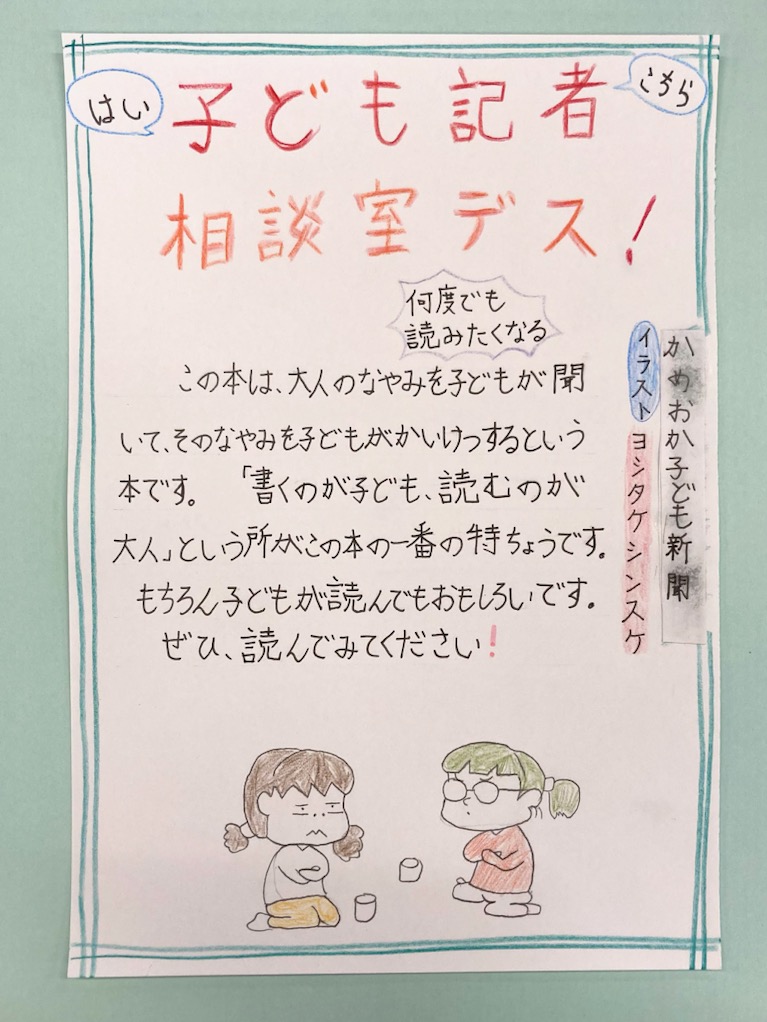 はい
子ども記者
こちら
相談室デス！
何度でも
読みたくなる
かめおか子ども新聞
イラスト ヨシタケシンスケ
この本は、大人のなやみを子どもが聞
いて、そのなやみを子どもがかいけつするという
本です。「書くのが子ども、読むのが
大人」という所がこの本の一番の特ちょうです。
もちろん子どもが読んでもおもしろいです。
ぜひ、読んでみてください！